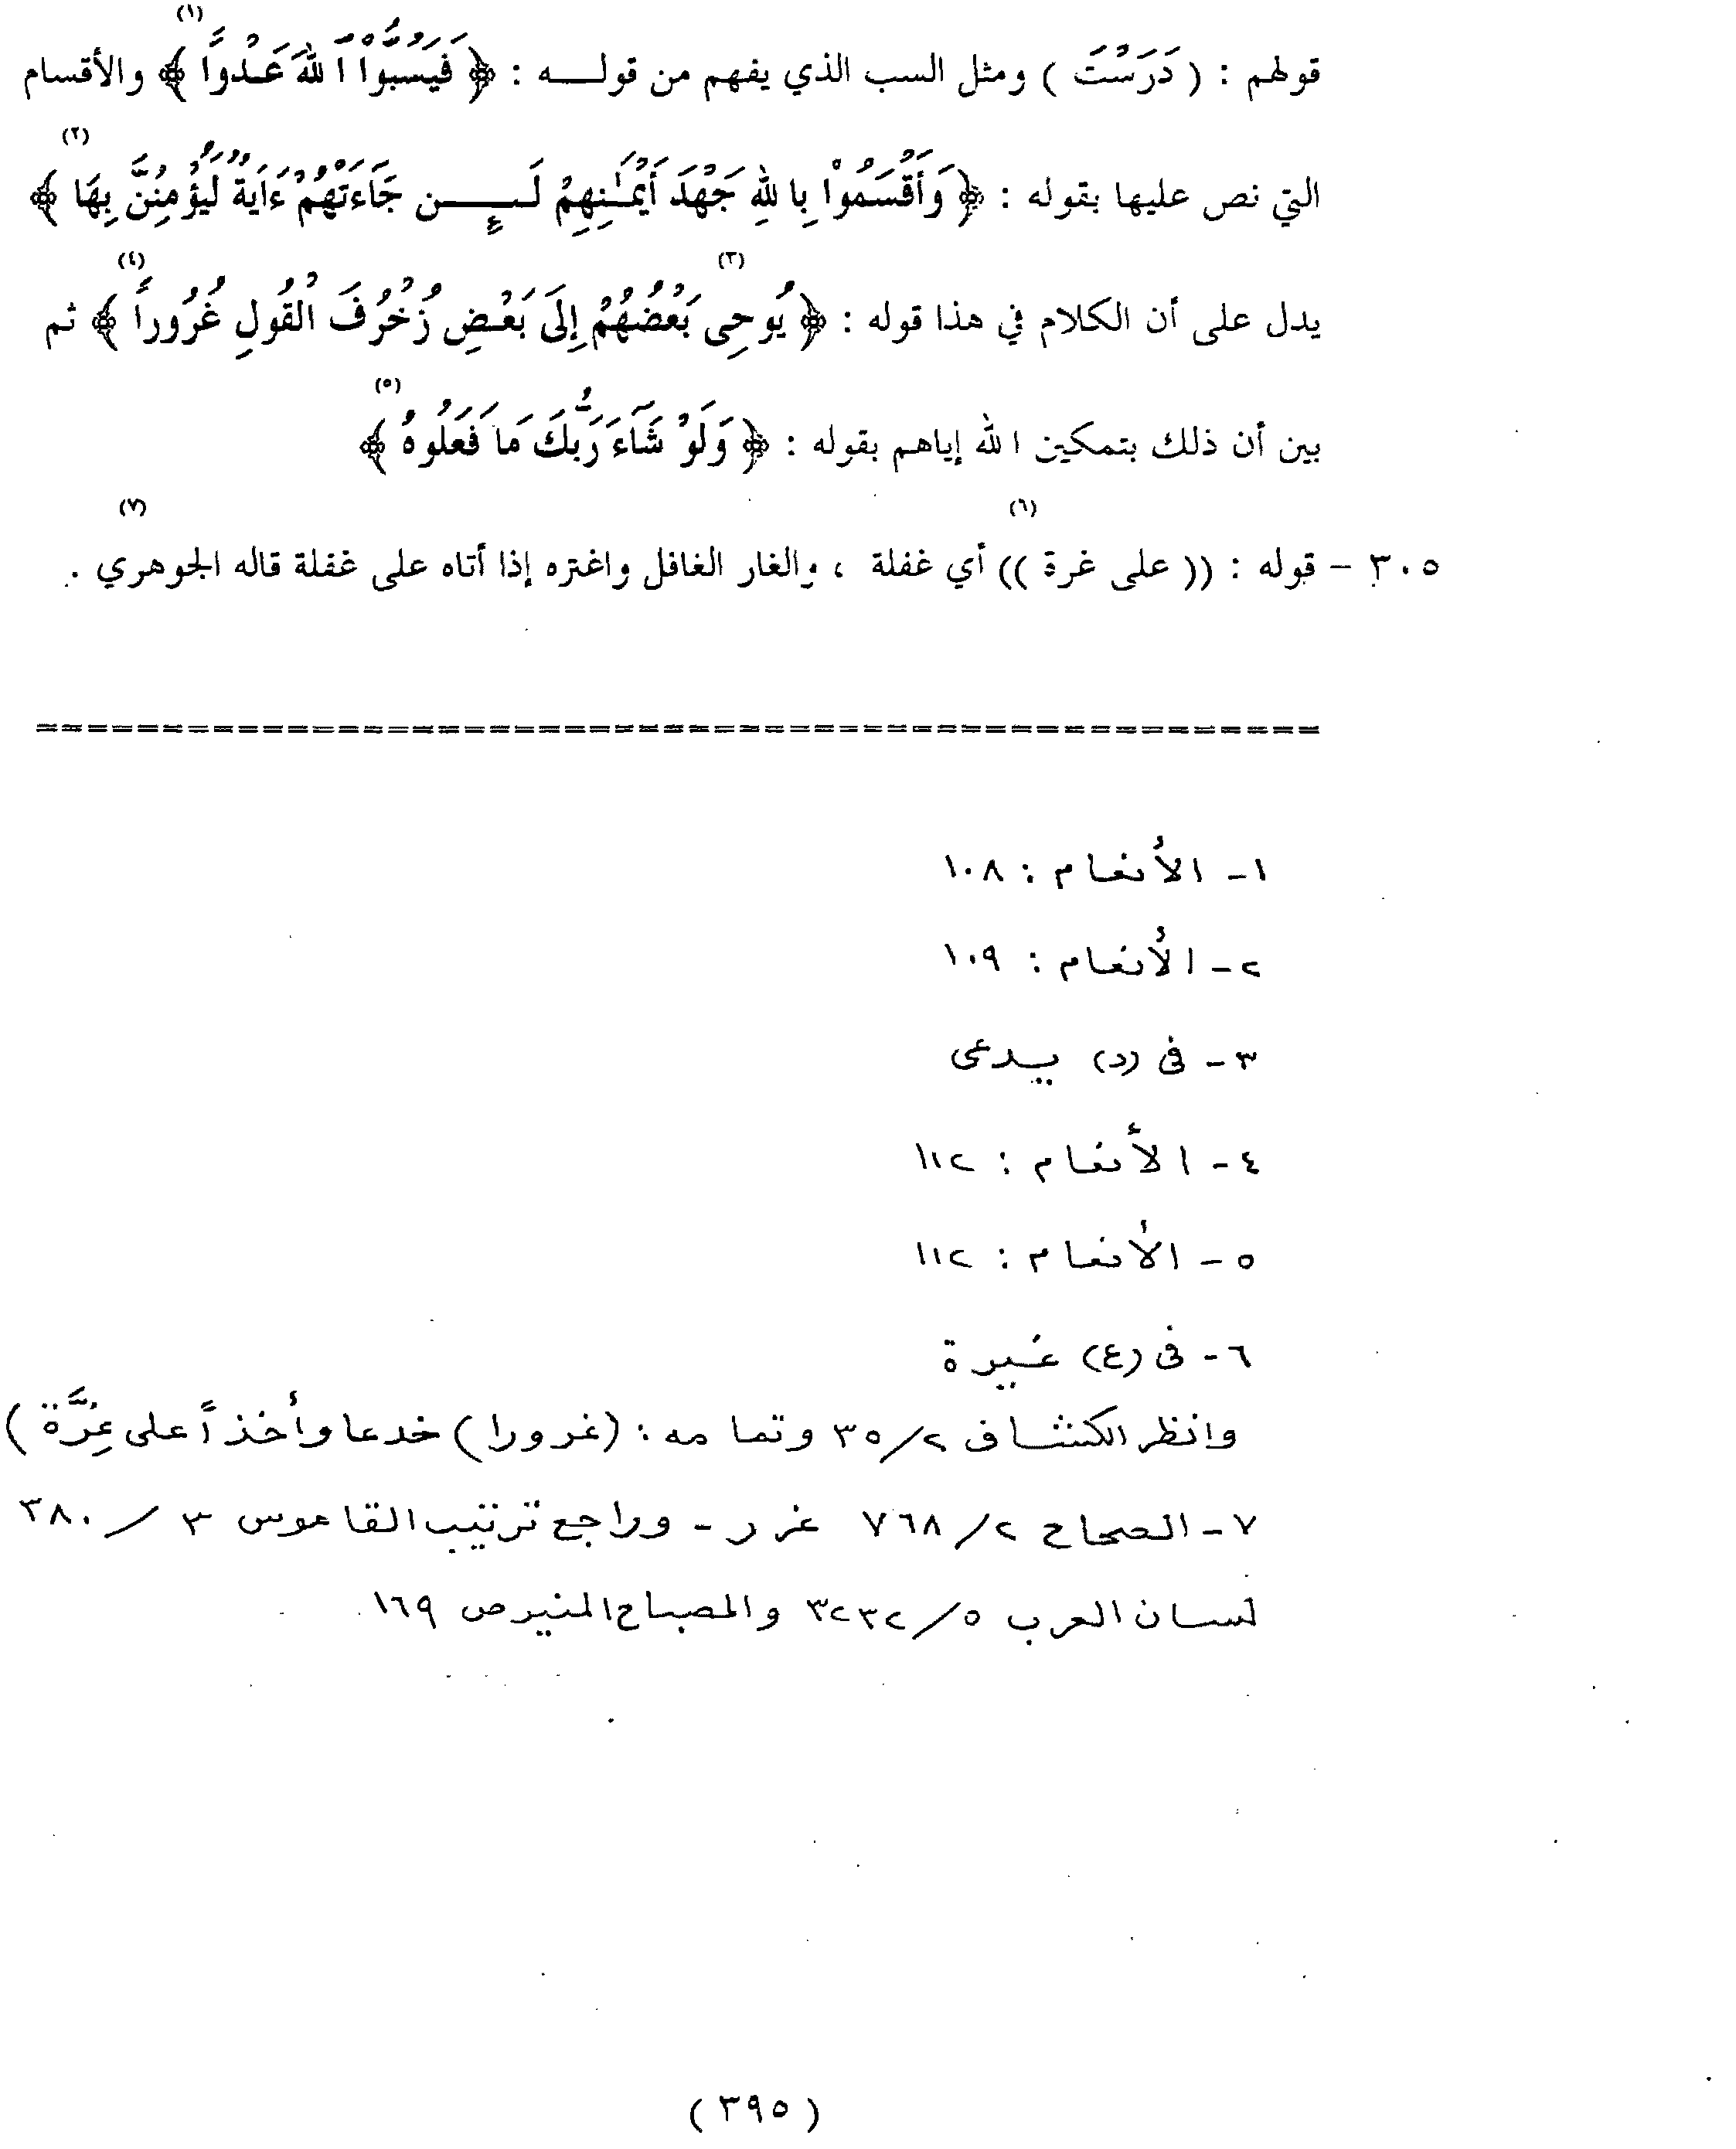 قولهم : ( دَرَسْتَ ) ومثل السب الذي يفهم من قولـــه : ﴿ فَيَسُبُّواْ اللَّهَ عَدْواً ﴾ (١) والأقسام
التي نص عليها بقوله : ﴿ وَأَقْسَمُواْ بِاللَّهِ جَهْدَ أَيْمَٰنِهِمْ لَـــئِــن جَآءَتْهُمْ ءَايَةٌ لَيُؤْمِنُنَّ بِهَا ﴾ (٢)
يدل على أن الكلام في هذا قوله : ﴿ يُوحِى (٣) بَعْضُهُمْ إِلَى بَعْضٍ زُخْرُفَ الْقُولِ غُرُوراً ﴾ (٤) ثم
بين أن ذلك بتمكين الله إياهم بقوله : ﴿ وَلَوْ شَآءَ رَبُّكَ مَا فَعَلُوهُ ﴾ (٥)
٣٠٥ – قوله : (( على غرة (٦) )) أي غفلة ، والغار الغافل واغتره إذا أتاه على غفلة قاله الجوهري (٧) .
===================================================
١- الأنعام : ١٠٨
٢- الأنعام : ١٠٩
٣- فى (د) يدعى
٤- الأنعام : ١١٢
٥- الأنعام : ١١٢
٦- فى (ع) غيرة
وانظر الكشاف ٣٥/٢ وتمامه : (غرورا) خدعا وأخذاً على غِرَّة )
٧- الصحاح ٧٦٨/٢ غرر - وراجع ترتيب القاموس ٣ / ٣٨٠
لسان العرب ٣٢٣٢/٥ والمصباح المنير ص ١٦٩
( ٣٩٥ )